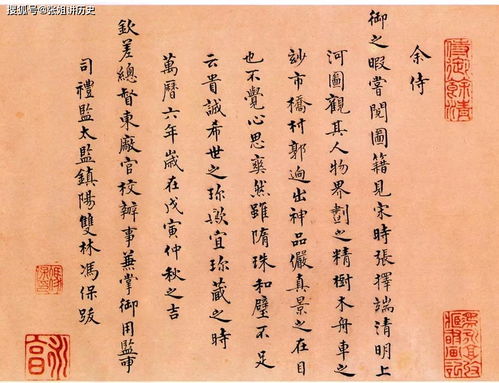 搜狐号@张姐讲历史
余侍
御之暇嘗閱圖籍見宋時張擇端清明上
河圖觀其人物界劃之精樹木舟車之
妙市橋村郭迥出神品儼真景之在目
也不覺心思爽然雖隋珠和璧不足
云貴誠希世之珍歟宜珍藏之時
萬曆六年歲在戊寅仲秋之吉
欽差總督東廠官校辦事兼掌御用監事
司禮監太監鎮陽雙林馮保跋